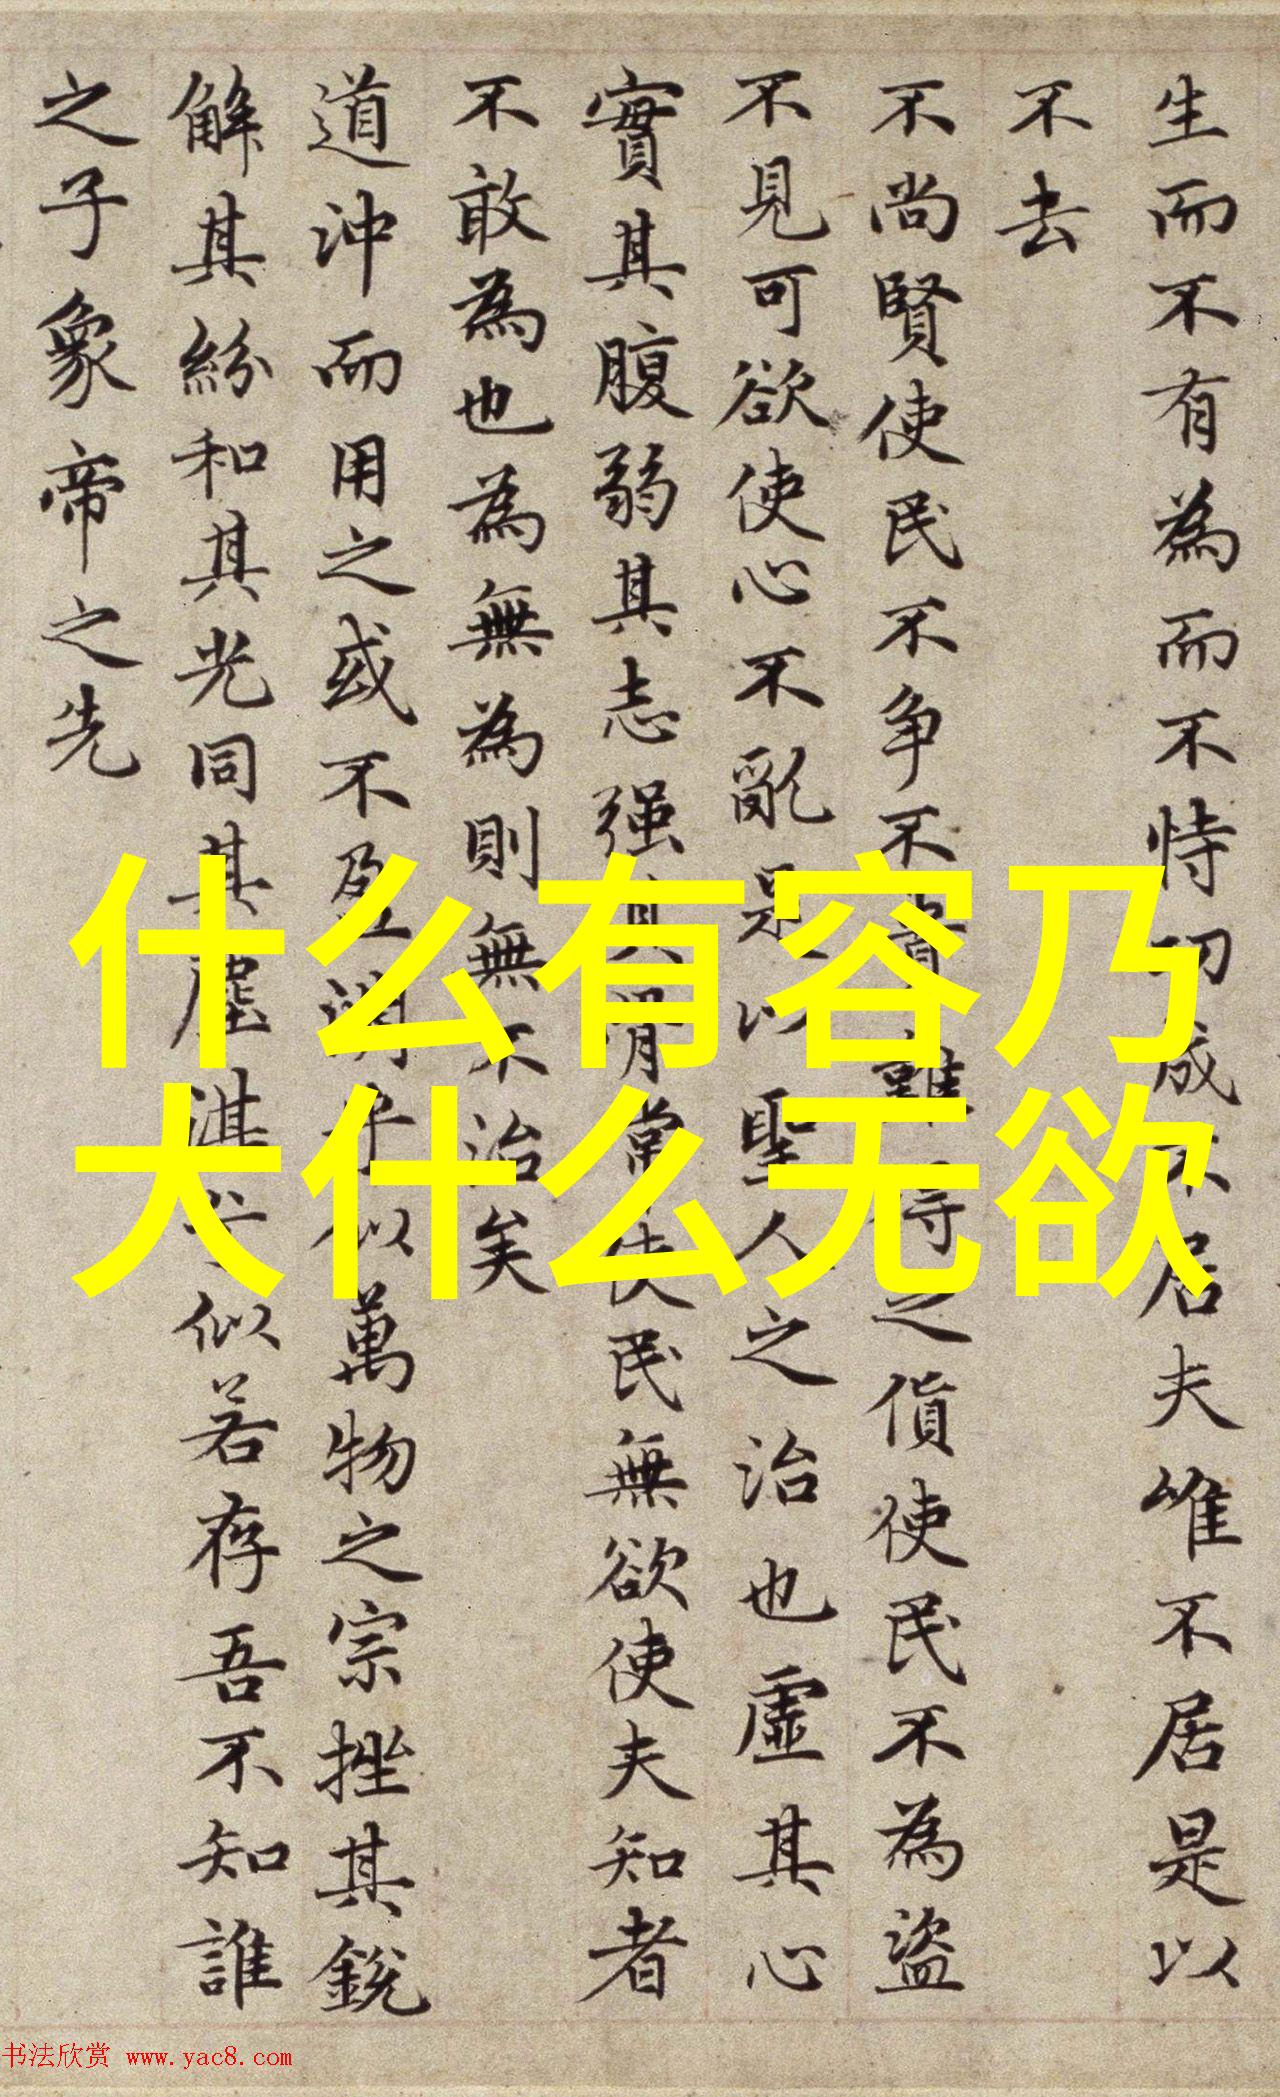 生而不有為而不恃功成不居夫唯不居是以
不去
不尚賢使民不争不貴難得之貨使民不為盜
不見可欲使心不亂是以聖人之治也虛其心
實其腹弱其志强其骨常使民無欲使夫知者
不敢為也為無為則無不治矣
道沖而用之或不盈淵乎似萬物之宗挫其銳
解其紛和其光同其塵湛兮似若存吾不知誰
之子象帝之先
什么有容乃
大什么无欲
书法欣赏 www.yac8.com